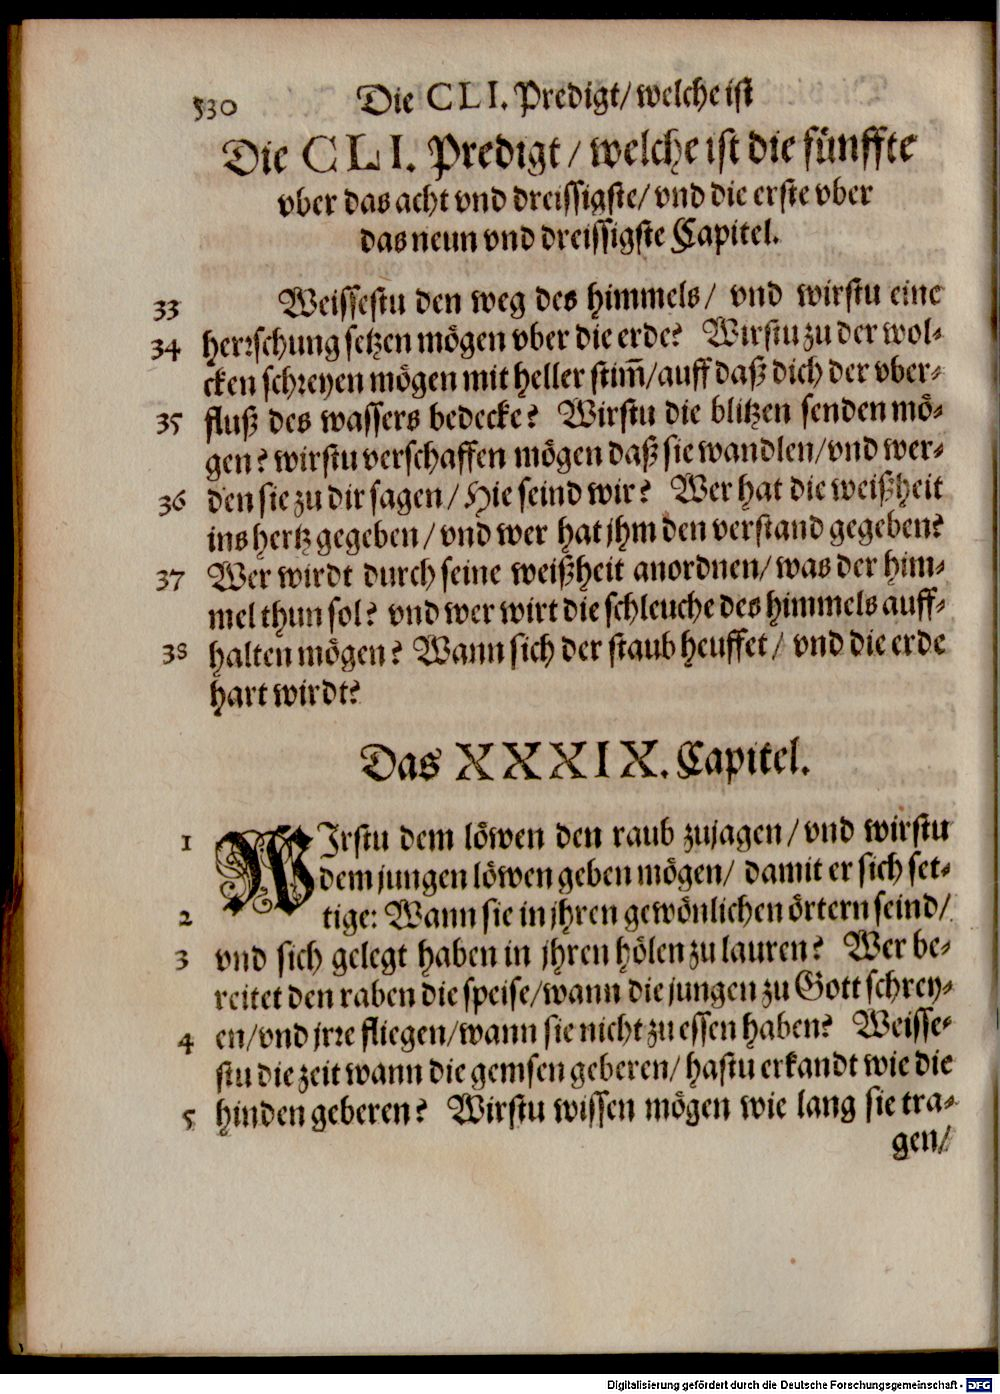 530 Die CLI. Predigt/ welche ist
Die CLI. Predigt/ welche ist die fünffte
vber das acht vnd dreissigste/ vnd die erste vber
das neun vnd dreissigste Capitel.
33 Weissestu den weg des himmels/ vnd wirstu eine
34 herrschung setzen mögen vber die erde? Wirstu zu der wol-
cken schreyen mögen mit heller stim̃/ auff daß dich der vber-
35 fluß des wassers bedecke? Wirstu die blitzen senden mö-
gen? wirstu verschaffen mögen daß sie wandlen/ vnd wer-
36 den sie zu dir sagen/ Hie seind wir? Wer hat die weißheit
ins hertz gegeben/ vnd wer hat jhm den verstand gegeben?
37 Wer wirdt durch seine weißheit anordnen/ was der him-
mel thun sol? vnd wer wirt die schleuche des himmels auff-
38 halten mögen? Wann sich der staub heuffet/ vnd die erde
hart wirdt?
Das XXXIX. Capitel.
1 WIrstu dem löwen den raub zujagen/ vnd wirstu
dem jungen löwen geben mögen/ damit er sich set-
2 tige: Wann sie in jhren gewönlichen örtern seind/
3 vnd sich gelegt haben in jhren hölen zu lauren? Wer be-
reitet den raben die speise/ wann die jungen zu Gott schrey-
4 en/ vnd jrre fliegen/ wann sie nicht zu essen haben? Weisse-
stu die zeit wann die gemsen geberen/ hastu erkandt wie die
5 hinden geberen? Wirstu wissen mögen wie lang sie tra-
gen/
Digitalisierung gefördert durch die Deutsche Forschungsgemeinschaft - DFG